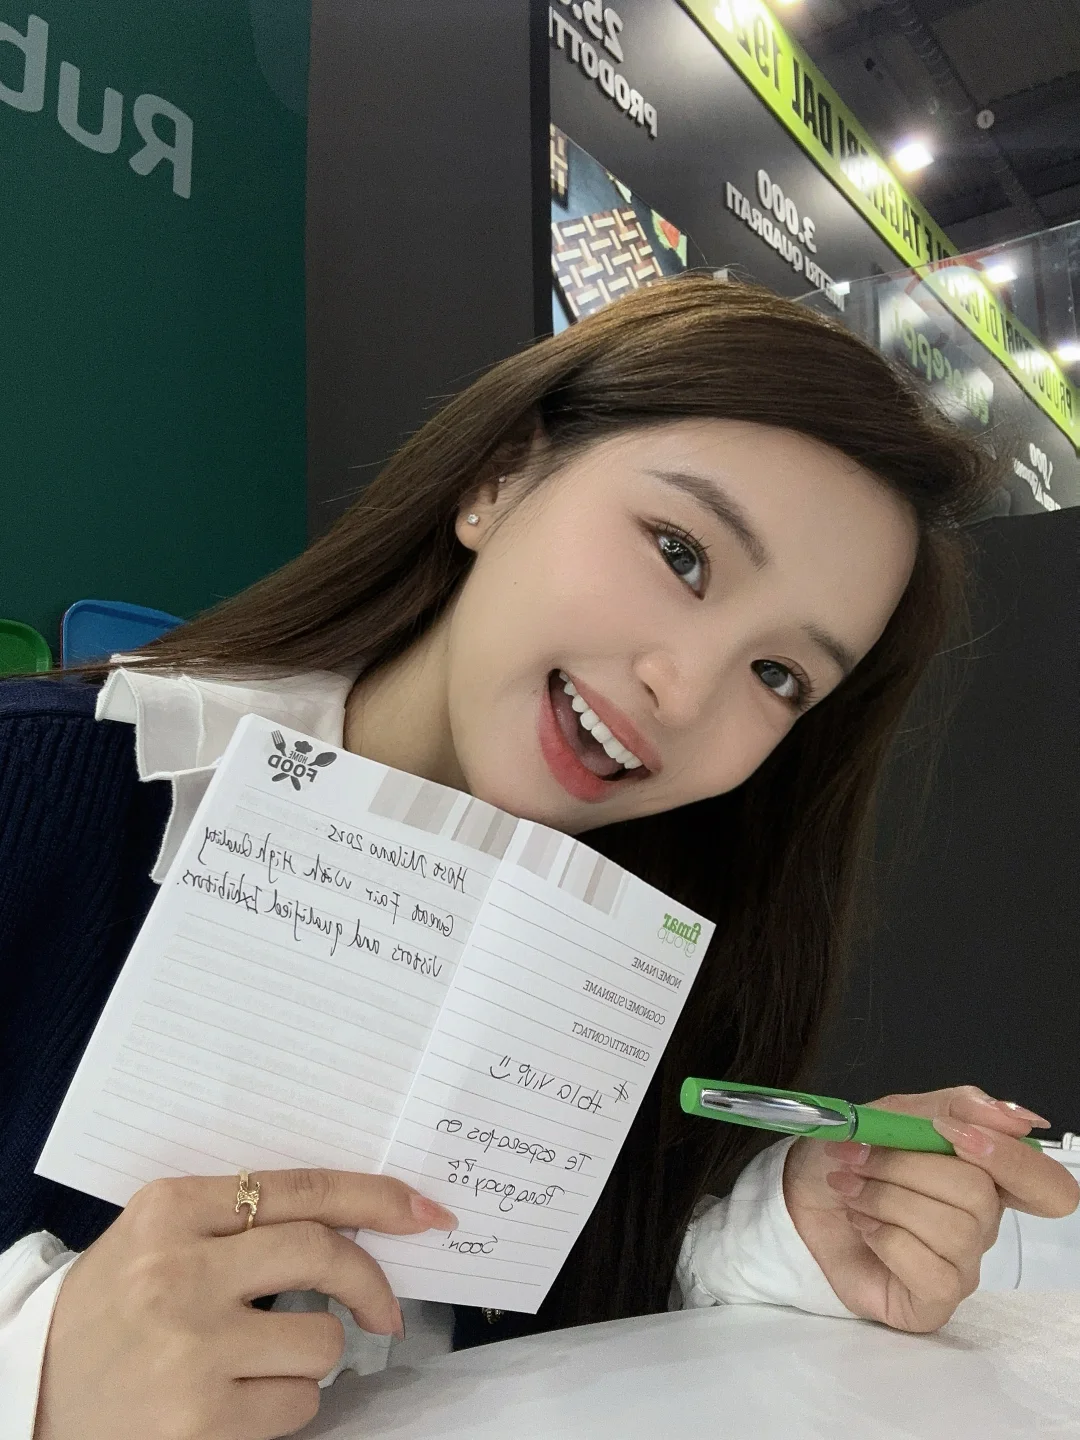 Rub
25.0
PRODOTTI
3.000
METRI QUADRATI
1.000
HOME
FOOD
Host Milano 2025
Great Fair with High Quality
Vistors and qualified Exhibitors.
fimar
group
NOME/NAME
COGNOME/SURNAME
CONTATTI/CONTACT
* Hola ViVi
Te esperamos en
Paraguay
Soon!